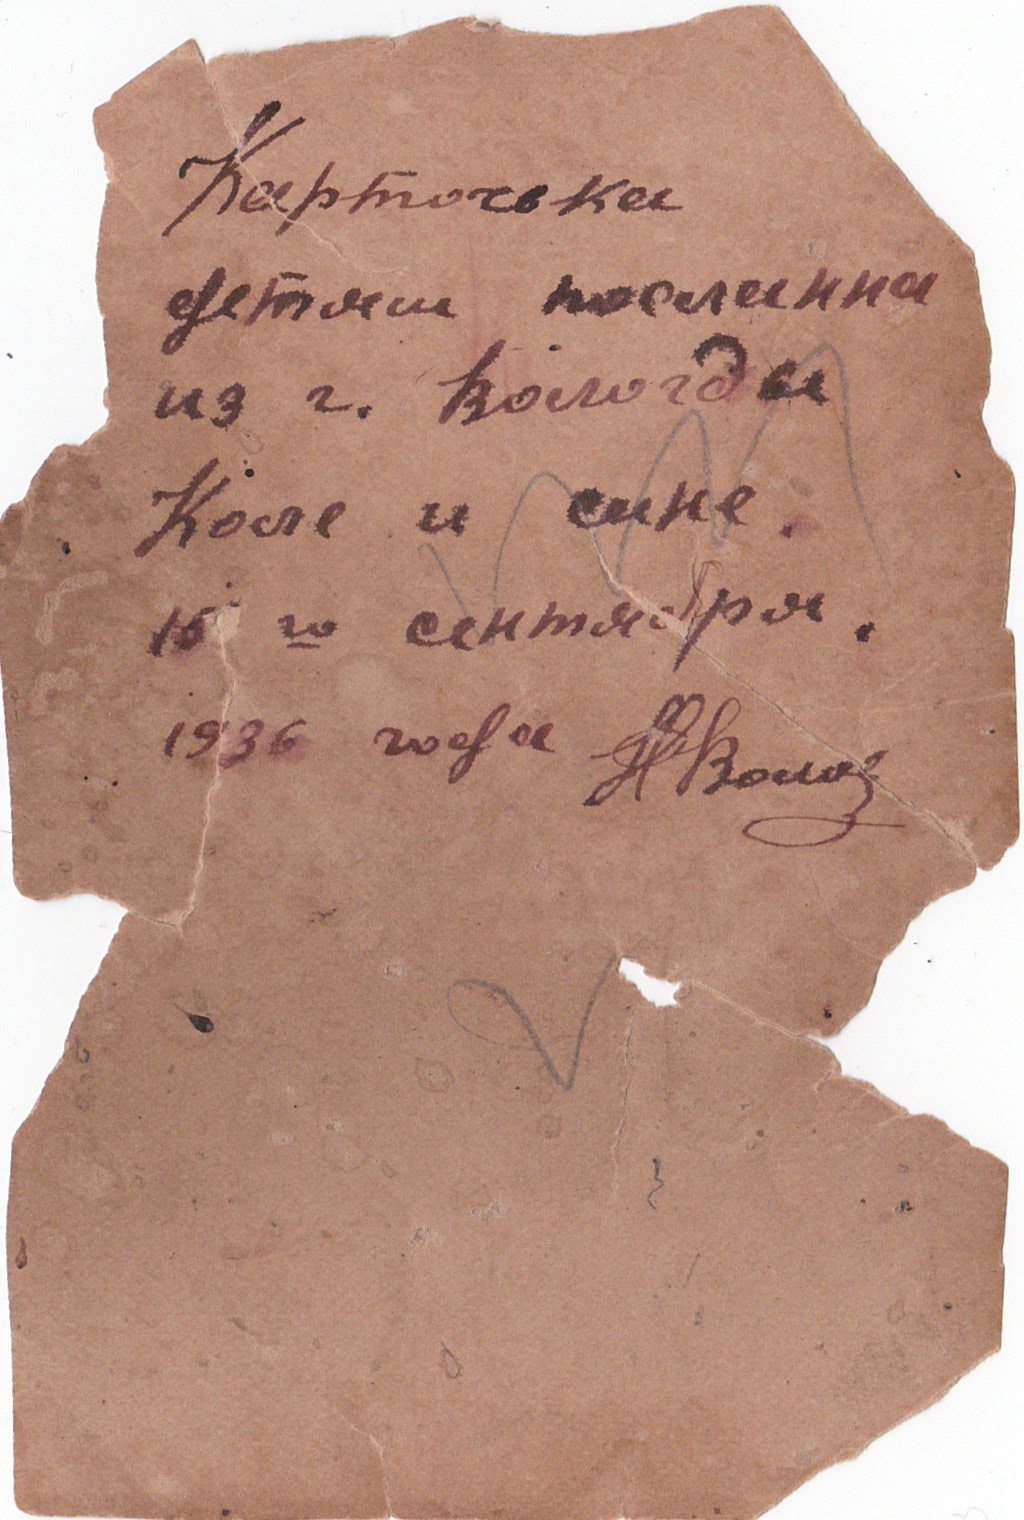 Карточька
детям посланна
из г. Вологды
Коле и сине
15 го сентября.
1936 года